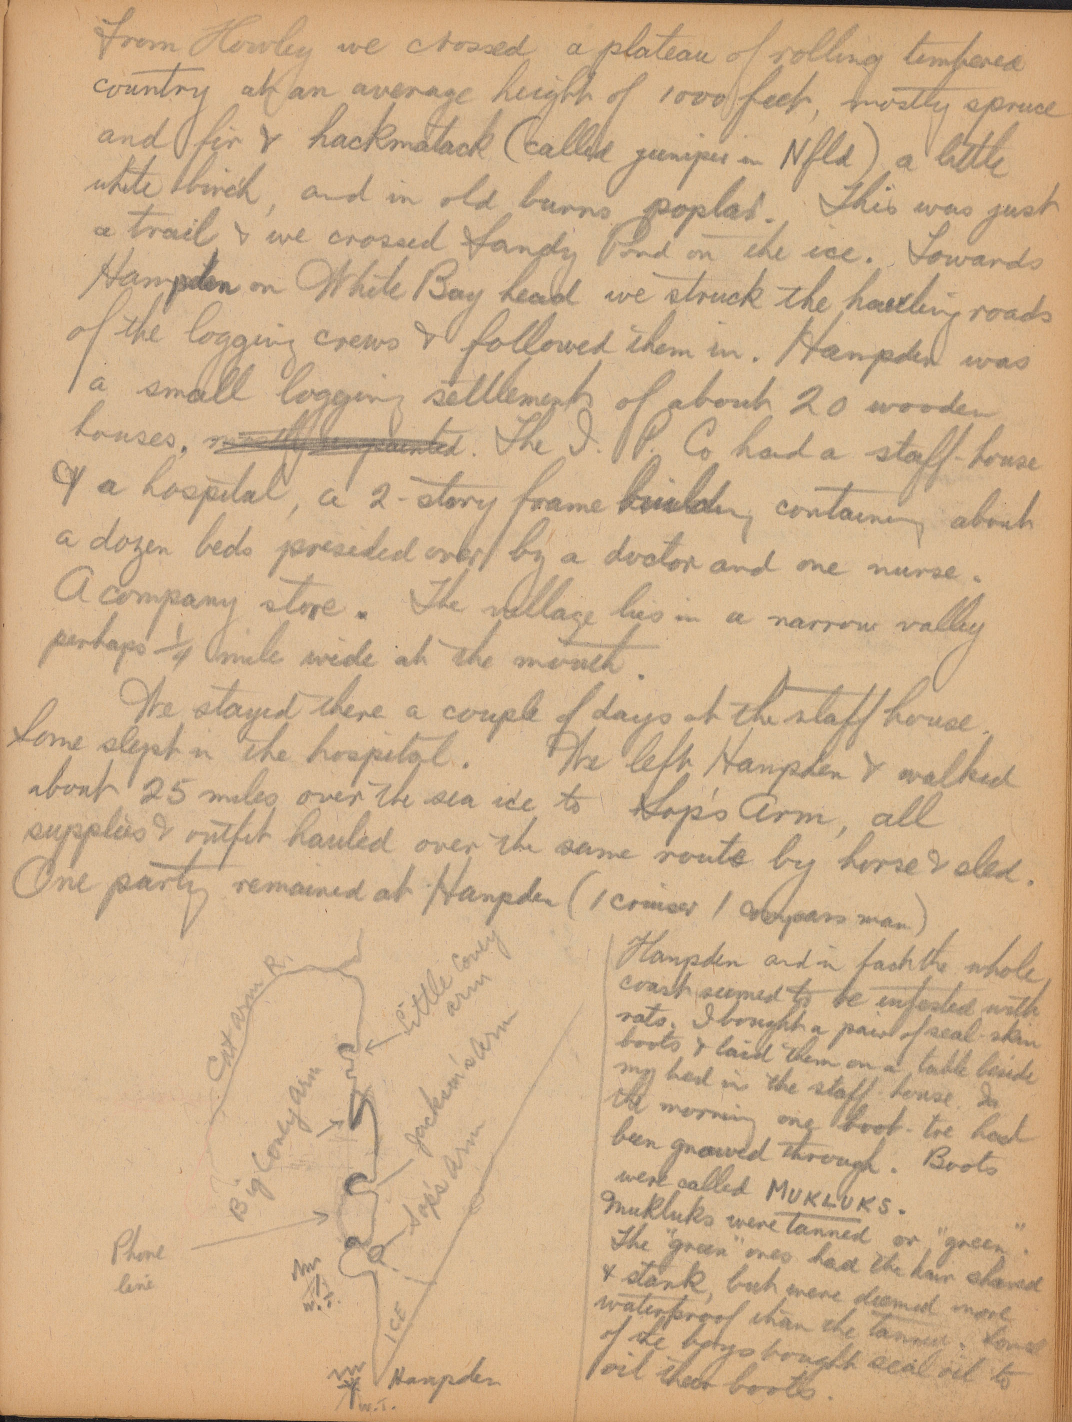 From Howley we crossed a plateau of rolling timbered
country at an average height of 1000 feet, mostly spruce
and fir & hackmatack (called juniper in Nfld) a little
white birch, and in old burns poplar. This was just
a trail & we crossed Sandy Pond on the ice. Towards
Hampden on White Bay head we struck the hauling roads
of the logging crews & followed them in. Hampden was
a small logging settlement of about 20 wooden
houses, mostly unpainted. The I. P. Co had a staff-house
& a hospital, a 2-story frame building containing about
a dozen beds presided over by a doctor and one nurse.
A company store. The village lies in a narrow valley
perhaps 1/4 mile wide at the mouth.
We stayed there a couple of days at the staff house.
Some slept in the hospital. We left Hampden & walked
about 25 miles over the sea ice to Sop's Arm, all
supplies & outfit hauled over the same route by horse & sled.
One party remained at Hampden (1 cruiser 1 compass man)
Cat arm R.
Little Coney
arm
Big Coney arm
Jackson's Arm
Sop's Arm
Phone
line
W.T.
ICE
Hampden
W.T.
Hampden and in fact the whole
coast seemed to be infested with
rats. I bought a pair of seal-skin
boots & laid them on a table beside
my bed in the staff house. In
the morning one boot-toe had
been gnawed through. Boots
were called MUKLUKS.
Mukluks were tanned or "green".
The "green" ones had the hair shaved
& stank, but were deemed more
waterproof than the tanned. Some
of the boys bought seal oil to
oil their boots.